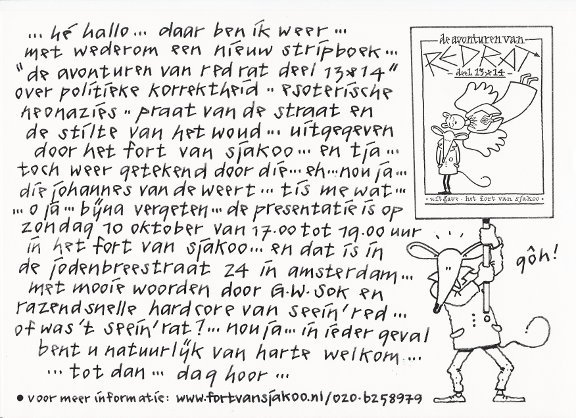 ... hé hallo... daar ben ik weer...
met wederom een nieuw stripboek...
"de avonturen van red rat deel 13&14"
over politieke korrektheid.. esoterische
neonazies.. praat van de straat en
de stilte van het woud... uitgegeven
door het fort van sjakoo... en tja...
toch weer getekend door die... eh... nou ja...
die johannes van de weert... tis me wat...
... o ja... bijna vergeten... de presentatie is op
zondag 10 oktober van 17.00 tot 19.00 uur
in het fort van sjakoo... en dat is in
de jodenbreestraat 24 in amsterdam...
met mooie woorden door G.W. Sok en
razendsnelle hardcore van seein' red...
of was 't seein' rat?... nou ja... in ieder geval
bent u natuurlijk van harte welkom...
... tot dan... dag hoor...
• voor meer informatie: www.fortvansjakoo.nl/020-6258979
de avonturen van
RED RAT
- deel 13&14 -
• uitgave • het fort van sjakoo •
gôh!